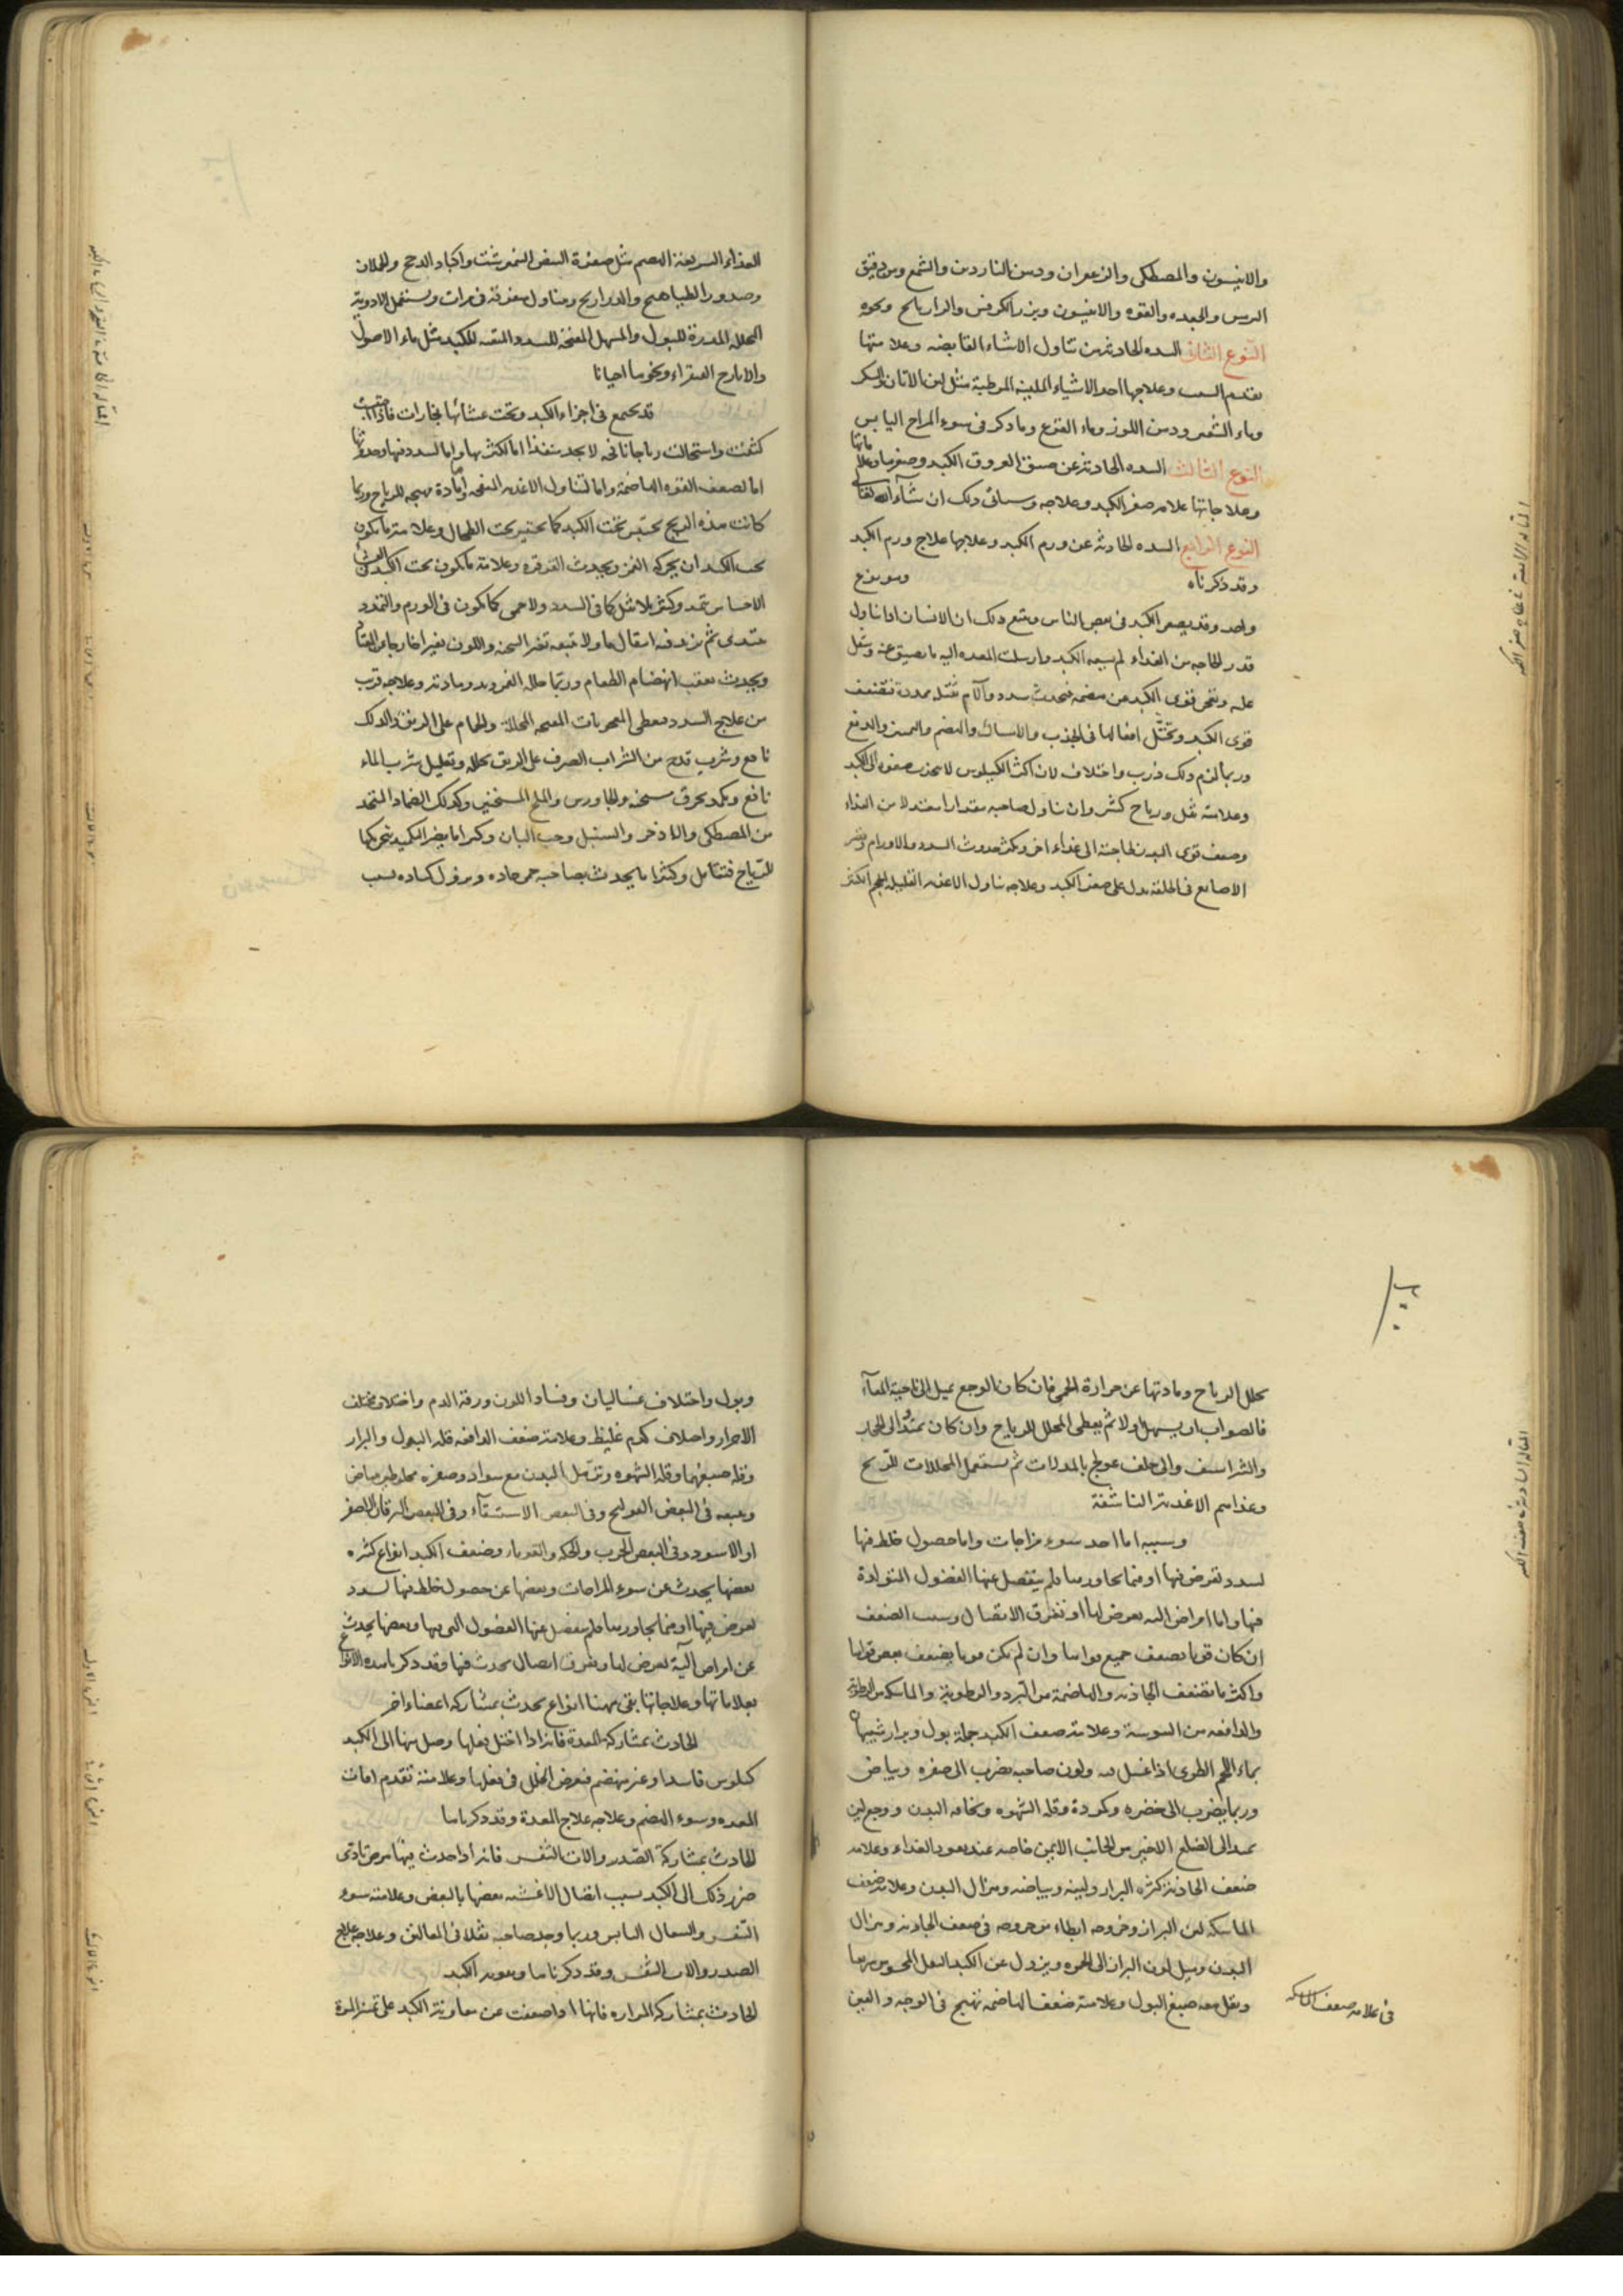 والانيسون والمصطكى والزعفران ودهن الناردين والشمع ومن دقيق
الترمس والجعده والفوه والانيسون وبزر الكرفس والرازيانج ونحوه
النوع الثانى السده الحادثه من تناول الاشياء القابضه وعلامتها
تقدم السبب وعلاجها احد الاشياء الملينه المرطبة مثل لبن الاتان والسكر
وماء الشعير ودهن اللوز وماء القرع وما ذكر فى سوء المزاج اليابس
النوع الثالث السده الحادثه عن ضيق العروق الكبد وصغرها وعلاماتها
وعلاجاتها علامه صغر الكبد وعلاجه وسياتى ذلك ان شاء الله تعالى
النوع الرابع السده الحادثه عن ورم الكبد وعلاجها علاج ورم الكبد
وقد ذكرناه وهو نوع
واحد وقد يصغر الكبد فى بعض الناس ويتبع ذلك ان الانسان اذا تناول
قدر الحاجه من الغذاء لم يسعه الكبد وارسلت المعده اليه ما يضيق عنه وثقل
عليه وتعجز قوى الكبد عن هضمه فيحدث سدد وآلام ثقل ممددة فتضعف
قوى الكبد وتختل افعالها فى الجذب والامساك والهضم والتميز والدفع
وربما لزم ذلك ذرب واختلاف لان اكثر الكيلوس لا ينجذب صفوه الى الكبد
وعلامته ثقل ورياح كثيره وان تناول صاحبه مقدارا معتدلا من الغذاء
وضعف قوى البدن لحاجته الى غذاء اخر ويكثر حدوث السدد والاورام وقصر
الاصابع فى الخلقه يدل على صغر الكبد وعلاجه تناول الاغذيه القليله الحجم الكثير
الغذاء السريعة الهضم مثل صفرة البيض النمرشت واكباد الدجج والحملان
وصدور الطياهيج والدراريج ويتناول متفرقة فى مرات ويستعمل الادوية
المحلله المدرة للبول والمسهل المفتحة للسدد والمنقيه للكبد مثل ماء الاصول
والايارج الفيقراء ونحوها احيانا
قد يجتمع فى اجزاء الكبد وتحت غشائها بخارات فاذا احتبست
كثفت واستحالت رياحا نافخه لا يجد منفذا اما لكثرتها واما لسدد فيها وحدوثها
اما لضعف القوه الهاضمة واما لتناول الاغذيه النفخه او مادة مهيجه للرياح وربما
كانت هذه الريح تحتبس تحت الكبد كما تحتبس تحت الطحال وعلامة ما يكون
تحت الكبد ان يحركه الغمز ويحدث القرقره وعلامة ما يكون تحت الكبد
الاحساس بتمدد وكثره بلا ثقل كما فى السدد ولا حمى كما يكون فى الورم والتمدد
يبتدى ثم يزيد فيه انتقال ما ولا يتبعه تغير السحنه واللون تغيرا خارجا
ويحدث بعقب انهضام الطعام وربما حلله الغمز وبدد مادته وعلاجه قريب
من علاج السدد ويعطى المعجونات المفتحه المحللة والحمام على الريق والدلك
نافع وشرب قدح من الشراب الصرف على الريق يحلله وتقليل شرب الماء
نافع ويكمد بخرق مسخنه والجاورس والملح المسخنين وكذلك الضماد المتخذ
من المصطكى والاذخر والسنبل وحب البان وكثيرا ما يضر التكميد بتحريكها
الرياح فتتامل وكثيرا ما يحدث بصاحبه حمى حاده ويزول كماده بسبب
تحلل الرياح ومادتها عن حرارة الحمى فان كان الوجع يميل الى ناحية المعاء
فالصواب ان يسهل اولا ثم يعطى المحلل للرياح وان كان ممتدا الى الحجاب
والشراسيف والى خلف عولج بالمدرات ثم يستعمل المحللات للريح
وغذاءهم الاغذية الناشفة
وسببه اما احد سوء مزاجات واما حصول خلط فيها
لسدد تعرض فيها او فيما يجاورها فلم ينفصل عنها الفضول المتولدة
فيها واما امراض آليه تعرض لها او تفرق الاتصال وسبب الضعف
ان كان قويا يضعف جميع قواها وان لم يكن قويا يضعف بعض قواها
واكثر ما يضعف الجاذبه والهاضمة من البرد والرطوبة والماسكه من الرطوبة
والدافعه من اليبوسة وعلامة ضعف الكبد جملة بول وبراز شبيهان
بماء اللحم الطرى اذا غسل به ولون صاحبه يضرب الى صفره وبياض
وربما يضرب الى خضره وكمودة وقلة الشهوه ونحافه البدن ووجع لين
يمتد الى الضلع الاخير من الجانب الايمن خاصه عند نفوذ الغذاء وعلامه
ضعف الجاذبة كثره البراز ولينه وبياضه وهزال البدن وعلامة ضعف
الماسكه لين البراز وخروجه ابطاء من خروجه فى ضعف الجاذبه وهزال
البدن وميل لون البراز الى الحمره ويزول عن الكبد الثقل المحسوس سريعا
ويقل معه صبغ البول وعلامة ضعف الهاضمه تهيج فى الوجه والعين
فى علامه ضعف الماسكه
وبول واختلاف غساليان وفساد اللون ورقة الدم واختلاف مختلف
الاحوال واختلاف كدم غليظ وعلامة ضعف الدافعه قله البول والبراز
وقله صبغهما وقلة الشهوه وترهل البدن مع سواد وصفره مخلوطين ببياض
ويتبعه فى البعض القولنج وفى البعض الاستسقاء وفى البعض اليرقان الاصفر
او الاسود وفى البعض الجرب والحكه والقوباء وضعف الكبد انواع كثيره
بعضها يحدث عن سوء المزاجات وبعضها عن حصول خلط فيها لسدد
تعرض فيها او فيما يجاورها فلم ينفصل عنها الفضول التى بها وبعضها يحدث
عن امراض آلية تعرض لها وتفرق اتصال يحدث فيها وقد ذكرنا هذه الانواع
بعلاماتها وعلاجاتها بقى ههنا انواع يحدث بمشاركه اعضاء اخر
الحادث بمشاركة المعدة فانه اذا اختل فعلها وصل منها الى الكبد
كيلوس فاسد او غير منهضم فيعرض الخلل فى فعلها وعلامته تقدم آفات
المعده وسوء الهضم وعلاجه علاج المعدة وقد ذكرناها
الحادث بمشاركة الصدر والات التنفس فانه اذا حدث فيها مرض تادى
ضرر ذلك الى الكبد بسبب اتصال الاغشيه بعضها بالبعض وعلامته سوء
التنفس والسعال اليابس وربما وجد صاحبه ثقلا فى المعاليق وعلاجه علاج
الصدر والات التنفس وقد ذكرناها وتقويه الكبد
الحادث بمشاركة المراره فانها اذا ضعفت عن معاونة الكبد على تميز المرة